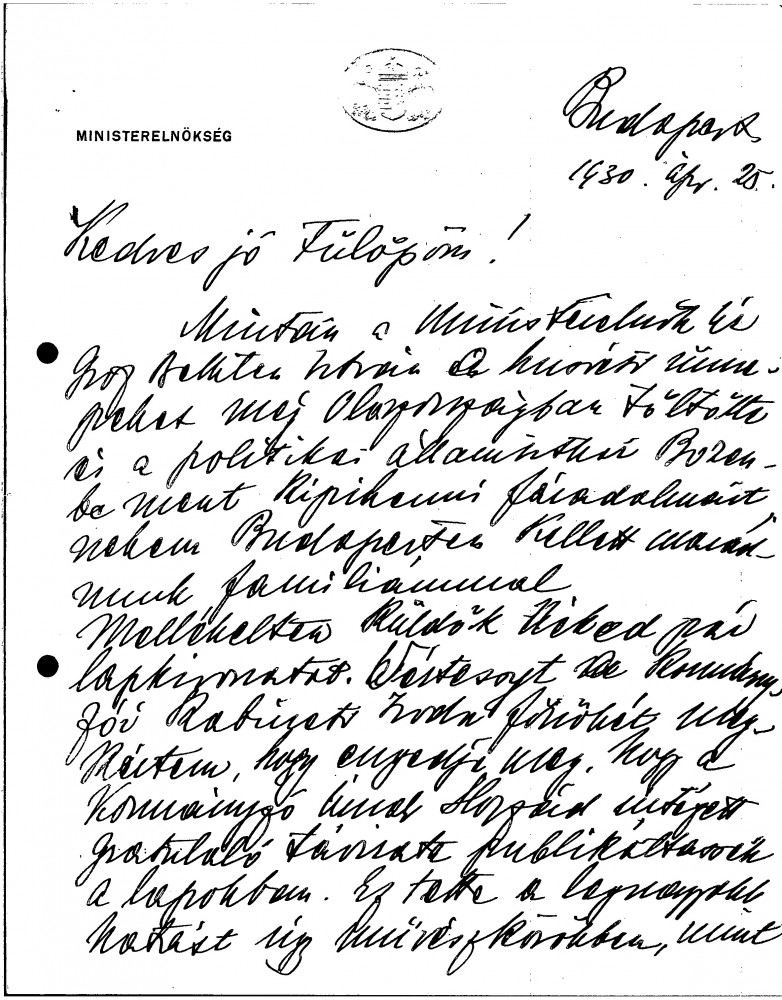 MINISTERELNÖKSÉG
Budapest,
1930. ápr. 25.
Kedves jó Fülöpöm!
Miután a Ministerelnök úr
Gróf Bethlen István a husvéti ünne-
peket még Olaszországban töltötte
és a politikai államtitkár Bozen-
be ment kipihenni fáradalmait,
nekem Budapesten kellett marad-
nunk famíliámmal
Mellékelten küldök Néked pár
lapkivonatot. Vértessyt a Kormány-
zói Kabinet Iroda főnökét meg-
kértem, hogy engedje meg, hogy a
Kormányzó úrnak Hozzád intézett
gratuláló távirata publikáltassék
a lapokban. Ez tette a legnagyobb
hatást úgy művészkörökben, mint